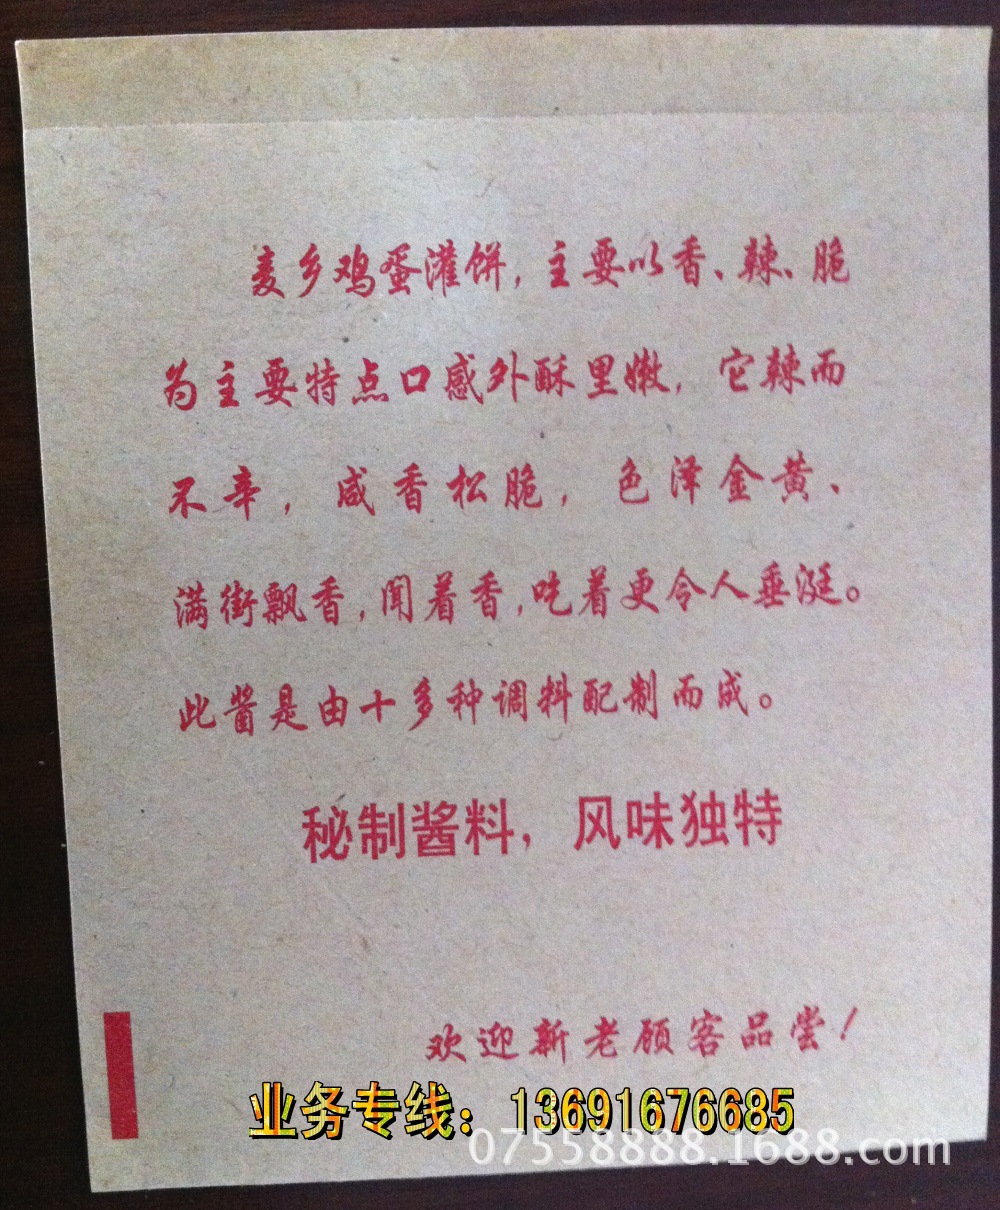 麦乡鸡蛋灌饼,主要以香、辣、脆
为主要特点口感外酥里嫩,它辣而
不辛,咸香松脆,色泽金黄、
满街飘香,闻着香,吃着更令人垂涎。
此酱是由十多种调料配制而成。
秘制酱料,风味独特
欢迎新老顾客品尝!
业务专线:13691676685
07558888.1688.com